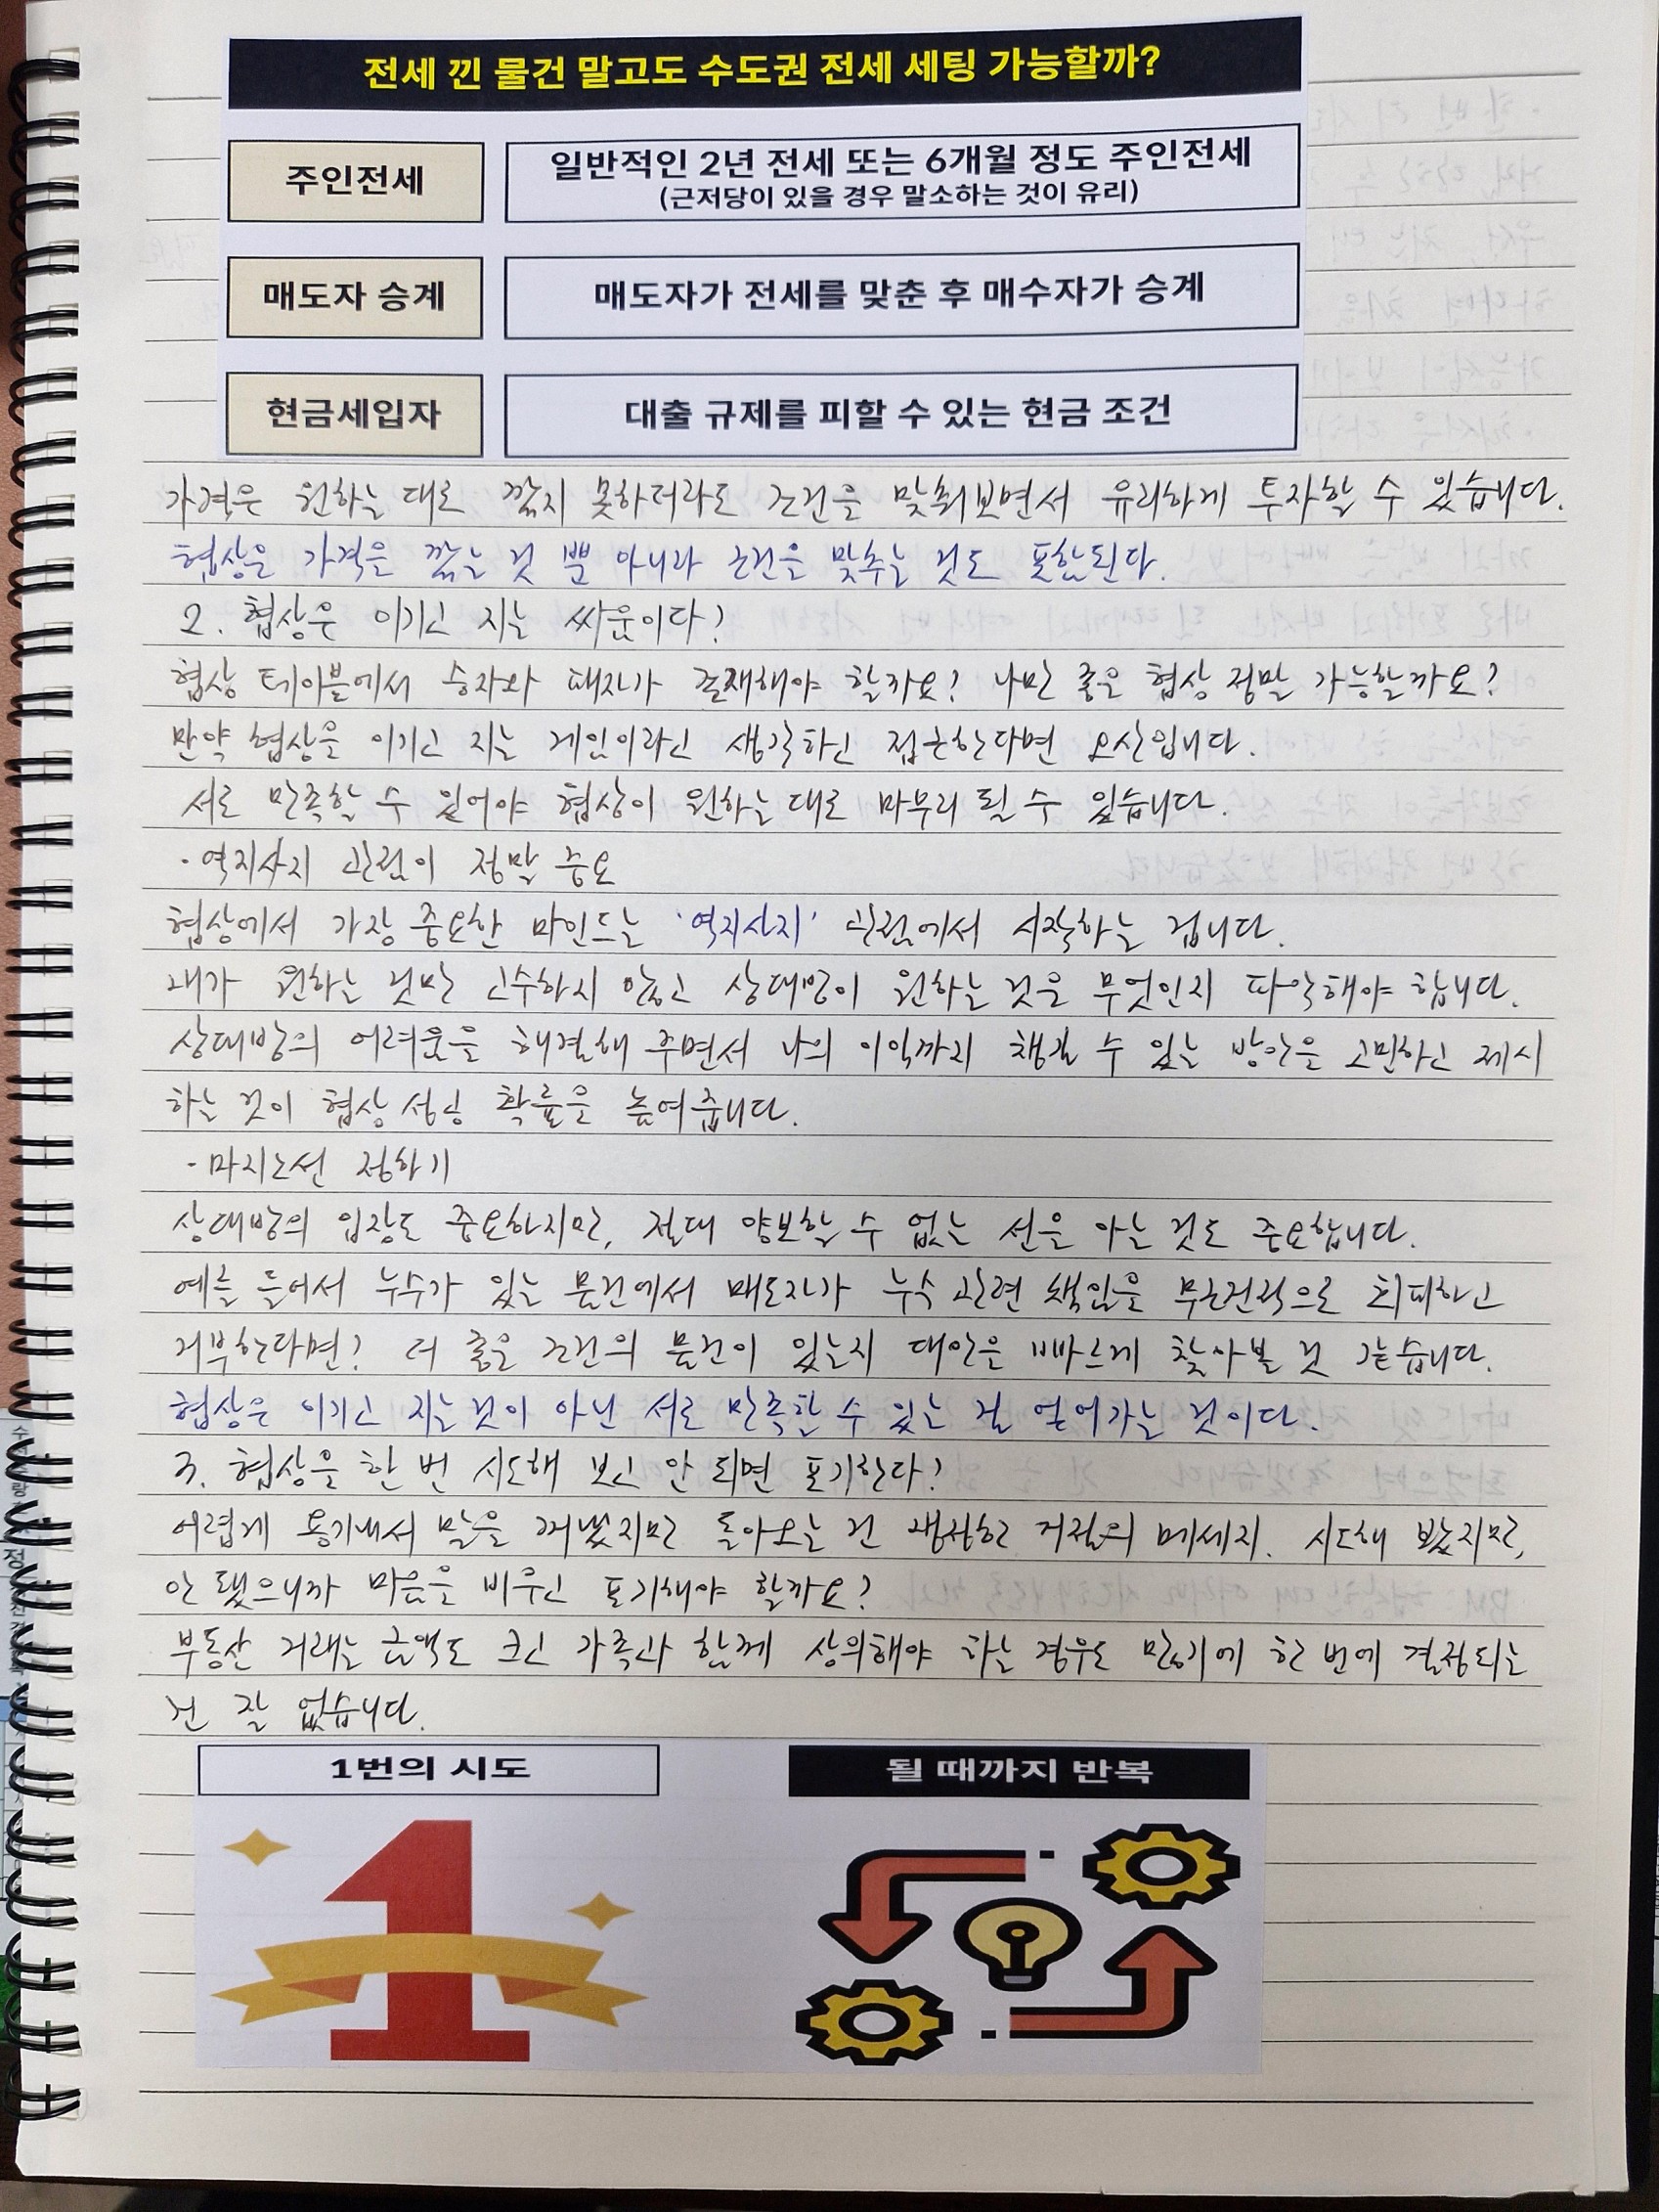 전세 낀 물건 말고도 수도권 전세 세팅 가능할까?
주인전세
일반적인 2년 전세 또는 6개월 정도 주인전세
(근저당이 있을 경우 말소하는 것이 유리)
매도자 승계
매도자가 전세를 맞춘 후 매수자가 승계
현금세입자
대출 규제를 피할 수 있는 현금 조건
가격은 원하는 대로 깎지 못하더라도 조건을 맞춰보면서 유리하게 투자할 수 있습니다.
협상은 가격은 깎는 것 뿐 아니라 조건을 맞추는 것도 포함된다.
2. 협상은 이기고 지는 싸움이다?
협상 테이블에서 승자와 패자가 존재해야 할까요? 나만 좋은 협상 정말 가능할까요?
만약 협상을 이기고 지는 게임이라고 생각하고 접근한다면 오산입니다.
서로 만족할 수 있어야 협상이 원하는 대로 마무리 될 수 있습니다.
· 역지사지 관점이 정말 중요
협상에서 가장 중요한 마인드는 '역지사지' 관점에서 시작하는 겁니다.
내가 원하는 것만 고수하지 않고 상대방이 원하는 것은 무엇인지 파악해야 합니다.
상대방의 어려움을 해결해 주면서 나의 이익까지 챙길 수 있는 방안을 고민하고 제시
하는 것이 협상 성공 확률을 높여줍니다.
· 마지노선 정하기
상대방의 입장도 중요하지만, 절대 양보할 수 없는 선을 아는 것도 중요합니다.
예를 들어서 누수가 있는 물건에서 매도자가 누수 관련 책임을 무조건적으로 회피하고
거부한다면? 더 좋은 조건의 물건이 있는지 대안을 빠르게 찾아볼 것 같습니다.
협상은 이기고 지는 것이 아닌 서로 만족할 수 있는 걸 얻어가는 것이다.
3. 협상을 한 번 시도해 보고 안 되면 포기한다?
어렵게 용기내서 말을 꺼냈지만 돌아오는 건 냉정한 거절의 메세지. 시도해 봤지만,
안 됐으니까 마음을 비우고 포기해야 할까요?
부동산 거래는 금액도 크고 가족과 함께 상의해야 하는 경우도 많기에 한 번에 결정되는
건 잘 없습니다.
1번의 시도
될 때까지 반복